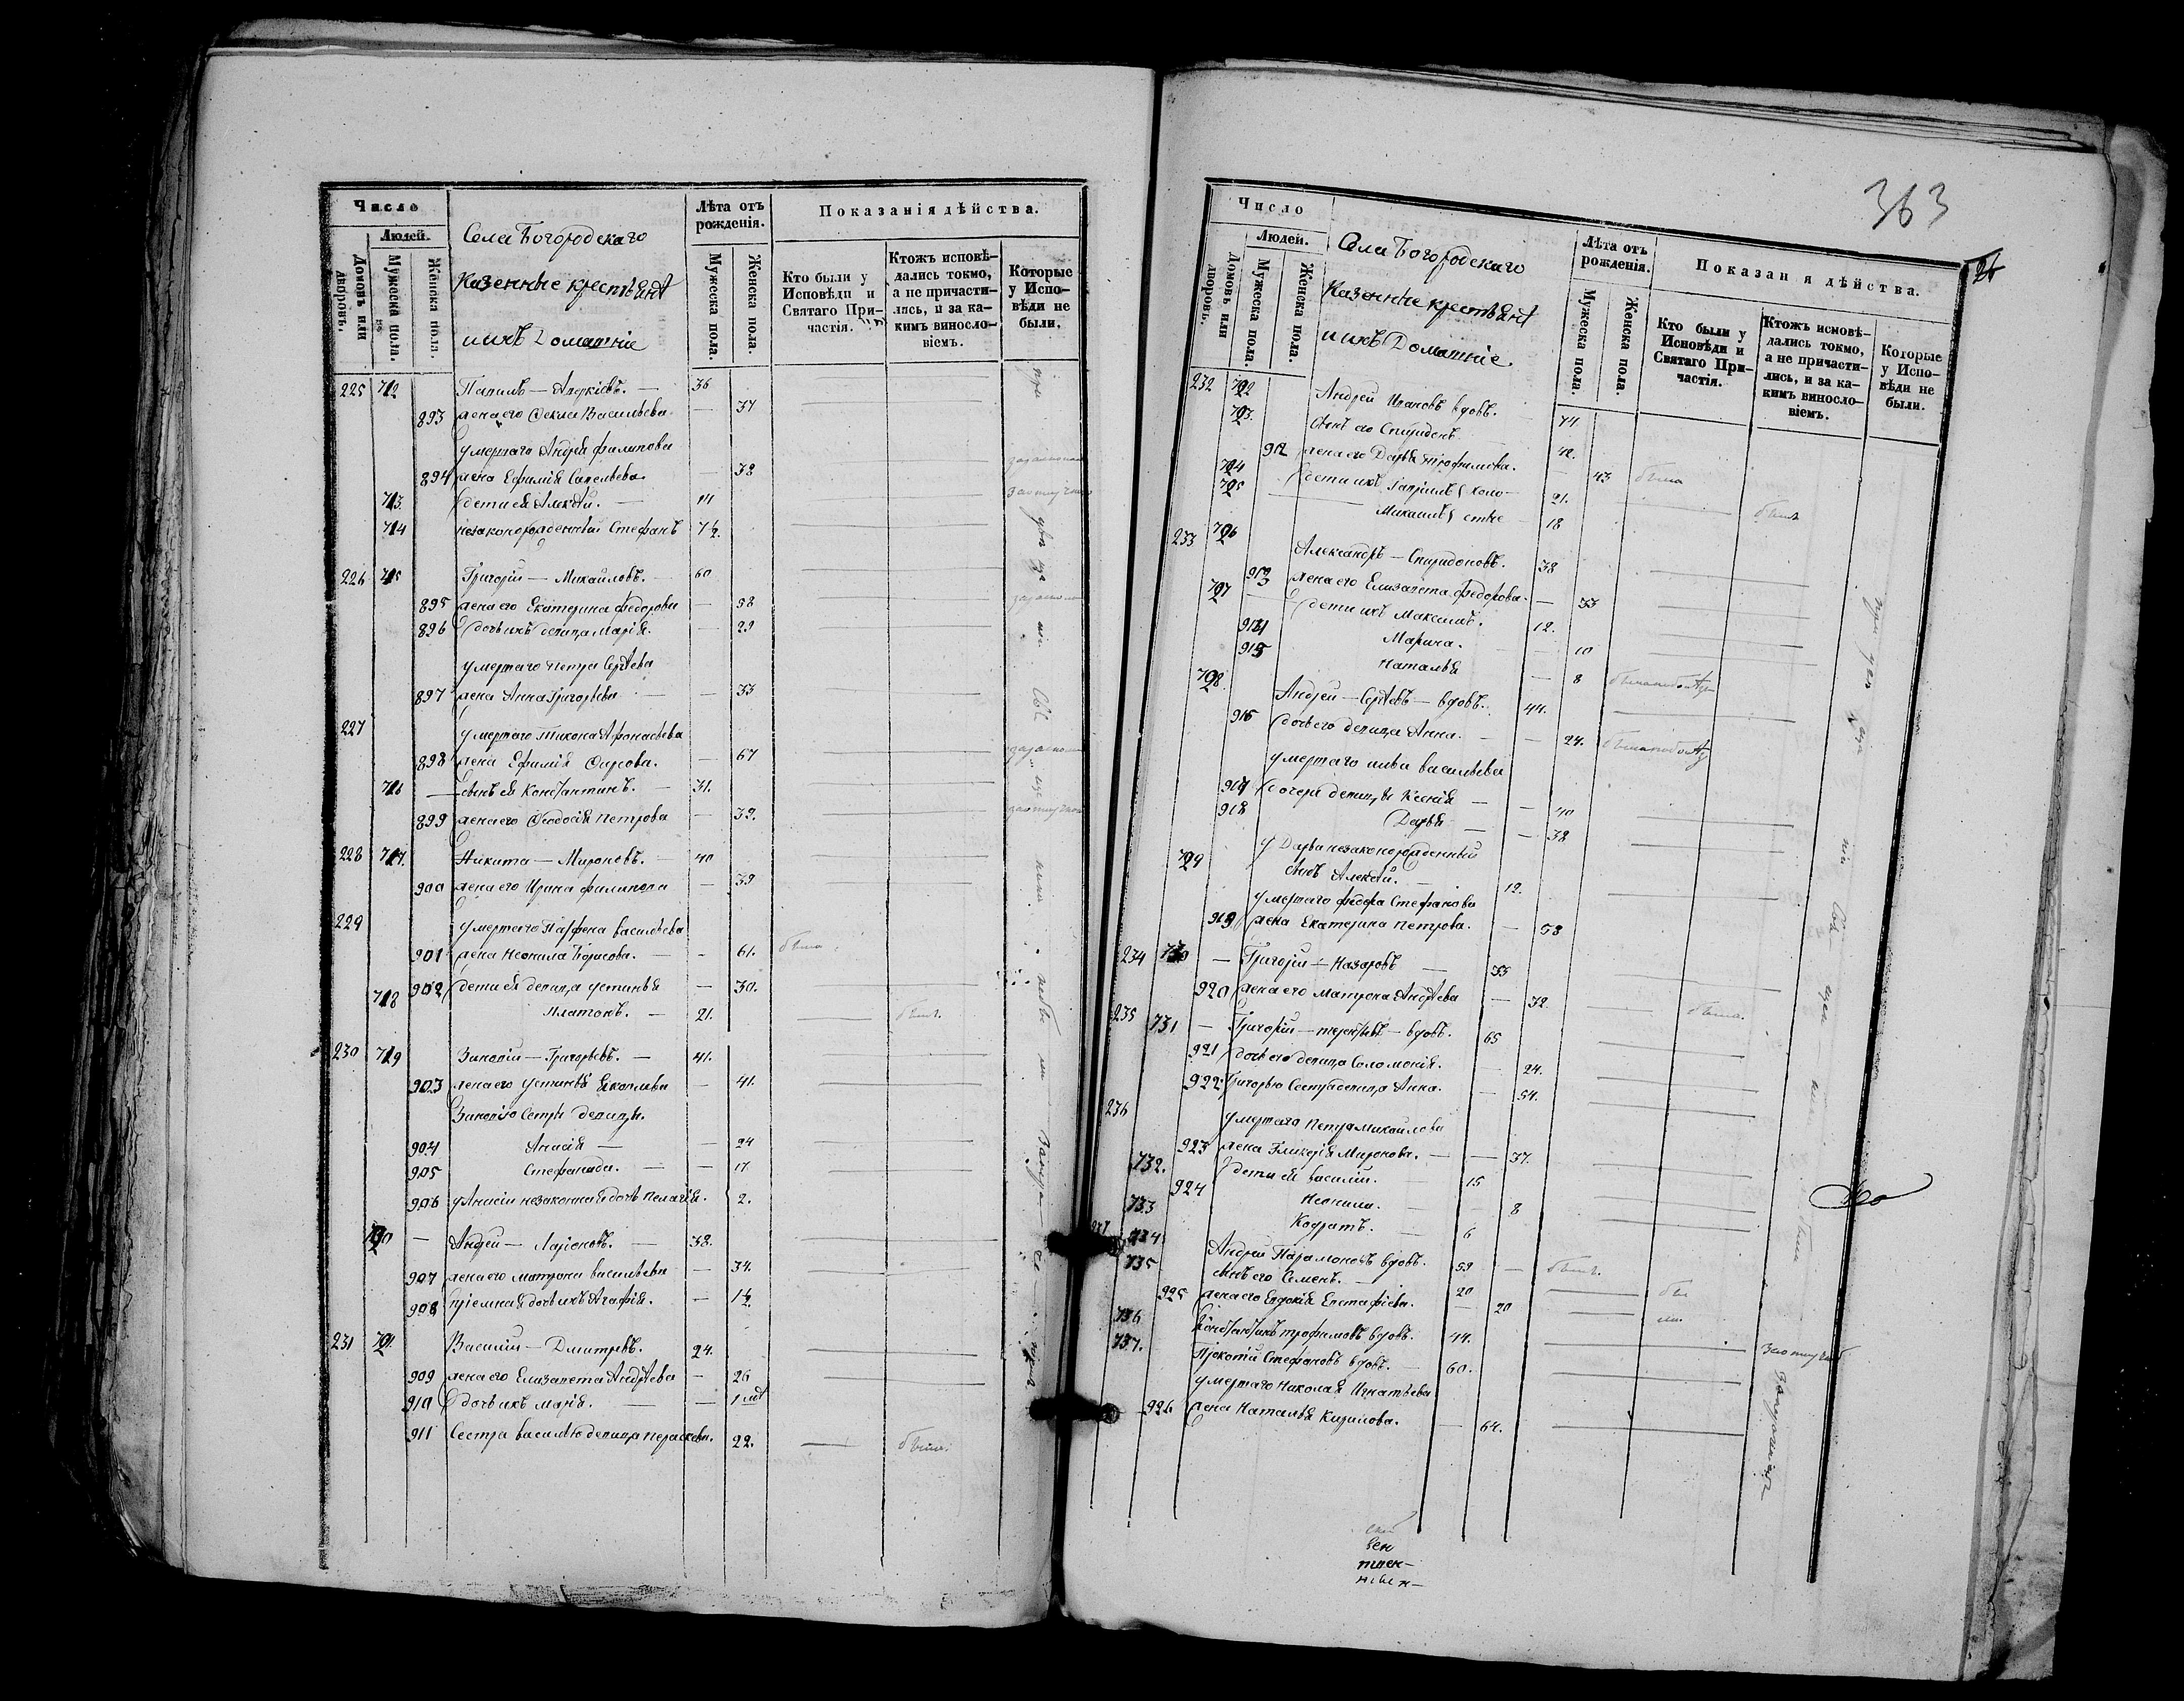 Число
Людей.
Домовъ или дворовъ.
Мужеска пола.
Женска пола.
Села Богородскаго
Казенные крестьянѣ
и ихъ Домашніе
Лѣта отъ рожденія.
Мужеска пола.
Женска пола.
Показанія дѣйства.
Кто были у Исповѣди и Святаго Причастія.
Ктожъ исповѣдались токмо, а не причастились, и за какимъ винословіемъ.
Которые у Исповѣди не были.
225 712 — 36
893 жена его Фекла Васильева — 37
умершаго Андрея Филипова
894 жена Ефимія Савельева — 38
713 дети ея Алексѣй — 14
714 незаконорожденный Стефанъ 7½
226 715 Григорій — Михайловъ — 60
895 жена его Екатерина Федорова — 58
896 дочь ихъ девица Марія. — 29
умершаго Петра Сергѣева
897 жена Анна Григорьева — 33
227 умершаго Тихона Афонасьева
898 жена Ефимія — 67
716 сынъ ея Константинъ. — 31.
899 жена его Феодосія Петрова — 32.
228 717. Никита — Мироновъ. — 40
900 жена его Ирина Филипова — 39
229 умершаго Парфена Васильева
901 жена Неонила Борисова. — 61. была
902 дети ея девица Устинья — 30.
718 Платонъ. — 21. — былъ.
230 719 Зиновій — Григорьевъ. — 41.
903 жена его Устинья Яковлева — 41.
Зиновію Сестры девицы.
904 Анисія — 24
905 Стефанида. — 17
906 у Анисіи незаконная дочь Пелагія. 2.
720 — Андрей — Ларіоновъ. — 38.
907 жена его Матрона Васильева — 34.
908 пріемная дочь ихъ Агафія. — 1½
231 721. Василій — Дмитревъ. 24.
909 жена его Елизавета Андрѣева — 26
910 дочь ихъ Марія. — 1
911 Сестра Василью девица Пераскева. 22. —
363
Число
Людей.
Домовъ или дворовъ.
Мужеска пола.
Женска пола.
Села Богородскаго
Казенные крестьянѣ
и ихъ Домашніе.
Лѣта отъ рожденія.
Мужеска пола.
Женска пола.
Показан я дѣйства.
Кто были у Исповѣди и Святаго Причастія.
Ктожъ исповѣдались токмо, а не причастились, и за какимъ винословіемъ.
Которые у Исповѣди не были.
232 722 Андрей Ивановъ вдовъ. 74
723. Сынъ его Спиридонъ 42.
912 жена его Дарья Трофимова. — 43 была
724 дети ихъ Гаврилъ холо- 21.
725 Михаилъ стые 18 былъ
233 726 Александръ — Спиридоновъ. 38
913 жена его Елизавета Федорова. — 33
727 дети ихъ Максимъ. 12.
914 Марина. — 10
915 Наталья — 8
728. Андрей — Сергѣевъ — вдовъ. 44.
916 дочь его девица Анна. — 24.
умершаго Васильева
917 дочери девицы Ксенія — 40
918 Дарья — 38
729 у Дарьи незаконорожденный
сынъ Алексѣй. 12.
умершаго Федора Стефанова
919 жена Екатерина Петрова. — 58
234 730 — Григорій — Назаровъ — 35
920 жена его Матрона Андрѣева — 32 — была.
235 731 — Григорій — Терентьевъ — вдовъ. 65
921 дочь его девица Соломонія. — 24.
922 Григорью Сестра девица Анна. — 54.
236 умершаго Петра Михайлова
923 жена Гликерія Миронова. — 37.
732. дети ея Василій. 15
924 Неонила. — 8
733 Кодратъ. 6
237 734 Андрей Парамоновъ вдовъ. 59 — былъ.
735 сынъ его Семенъ. 20
925 жена его Евдокія Евстафіева. — 20
736 Константинъ Трофимовъ вдовъ. 44.
737. Прокопій Стефановъ вдовъ. 60.
умершаго Николая Игнатьева
926 жена Наталья Кирилова. — 64.